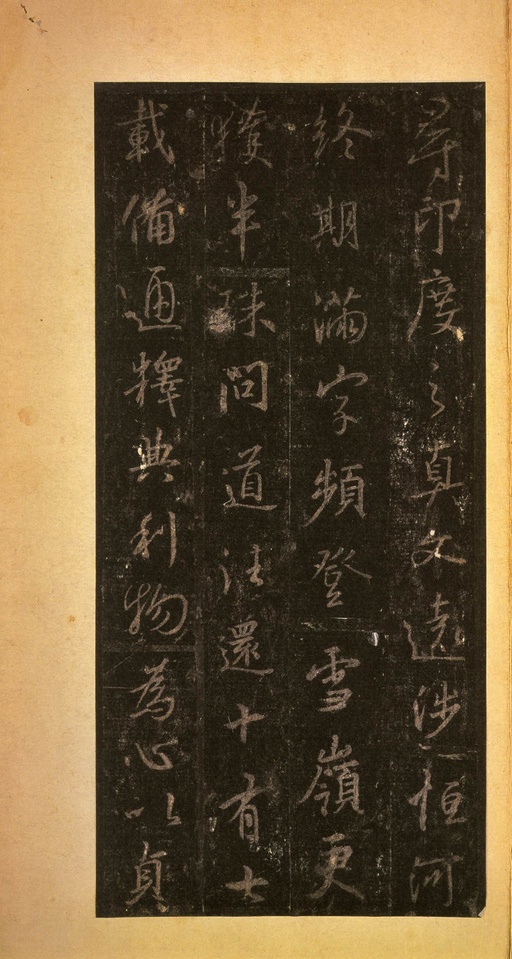 尋印度之真文遠涉恒河
終期滿字頻登雪嶺更
獲半珠問道往還十有七
載備通釋典利物為心以貞